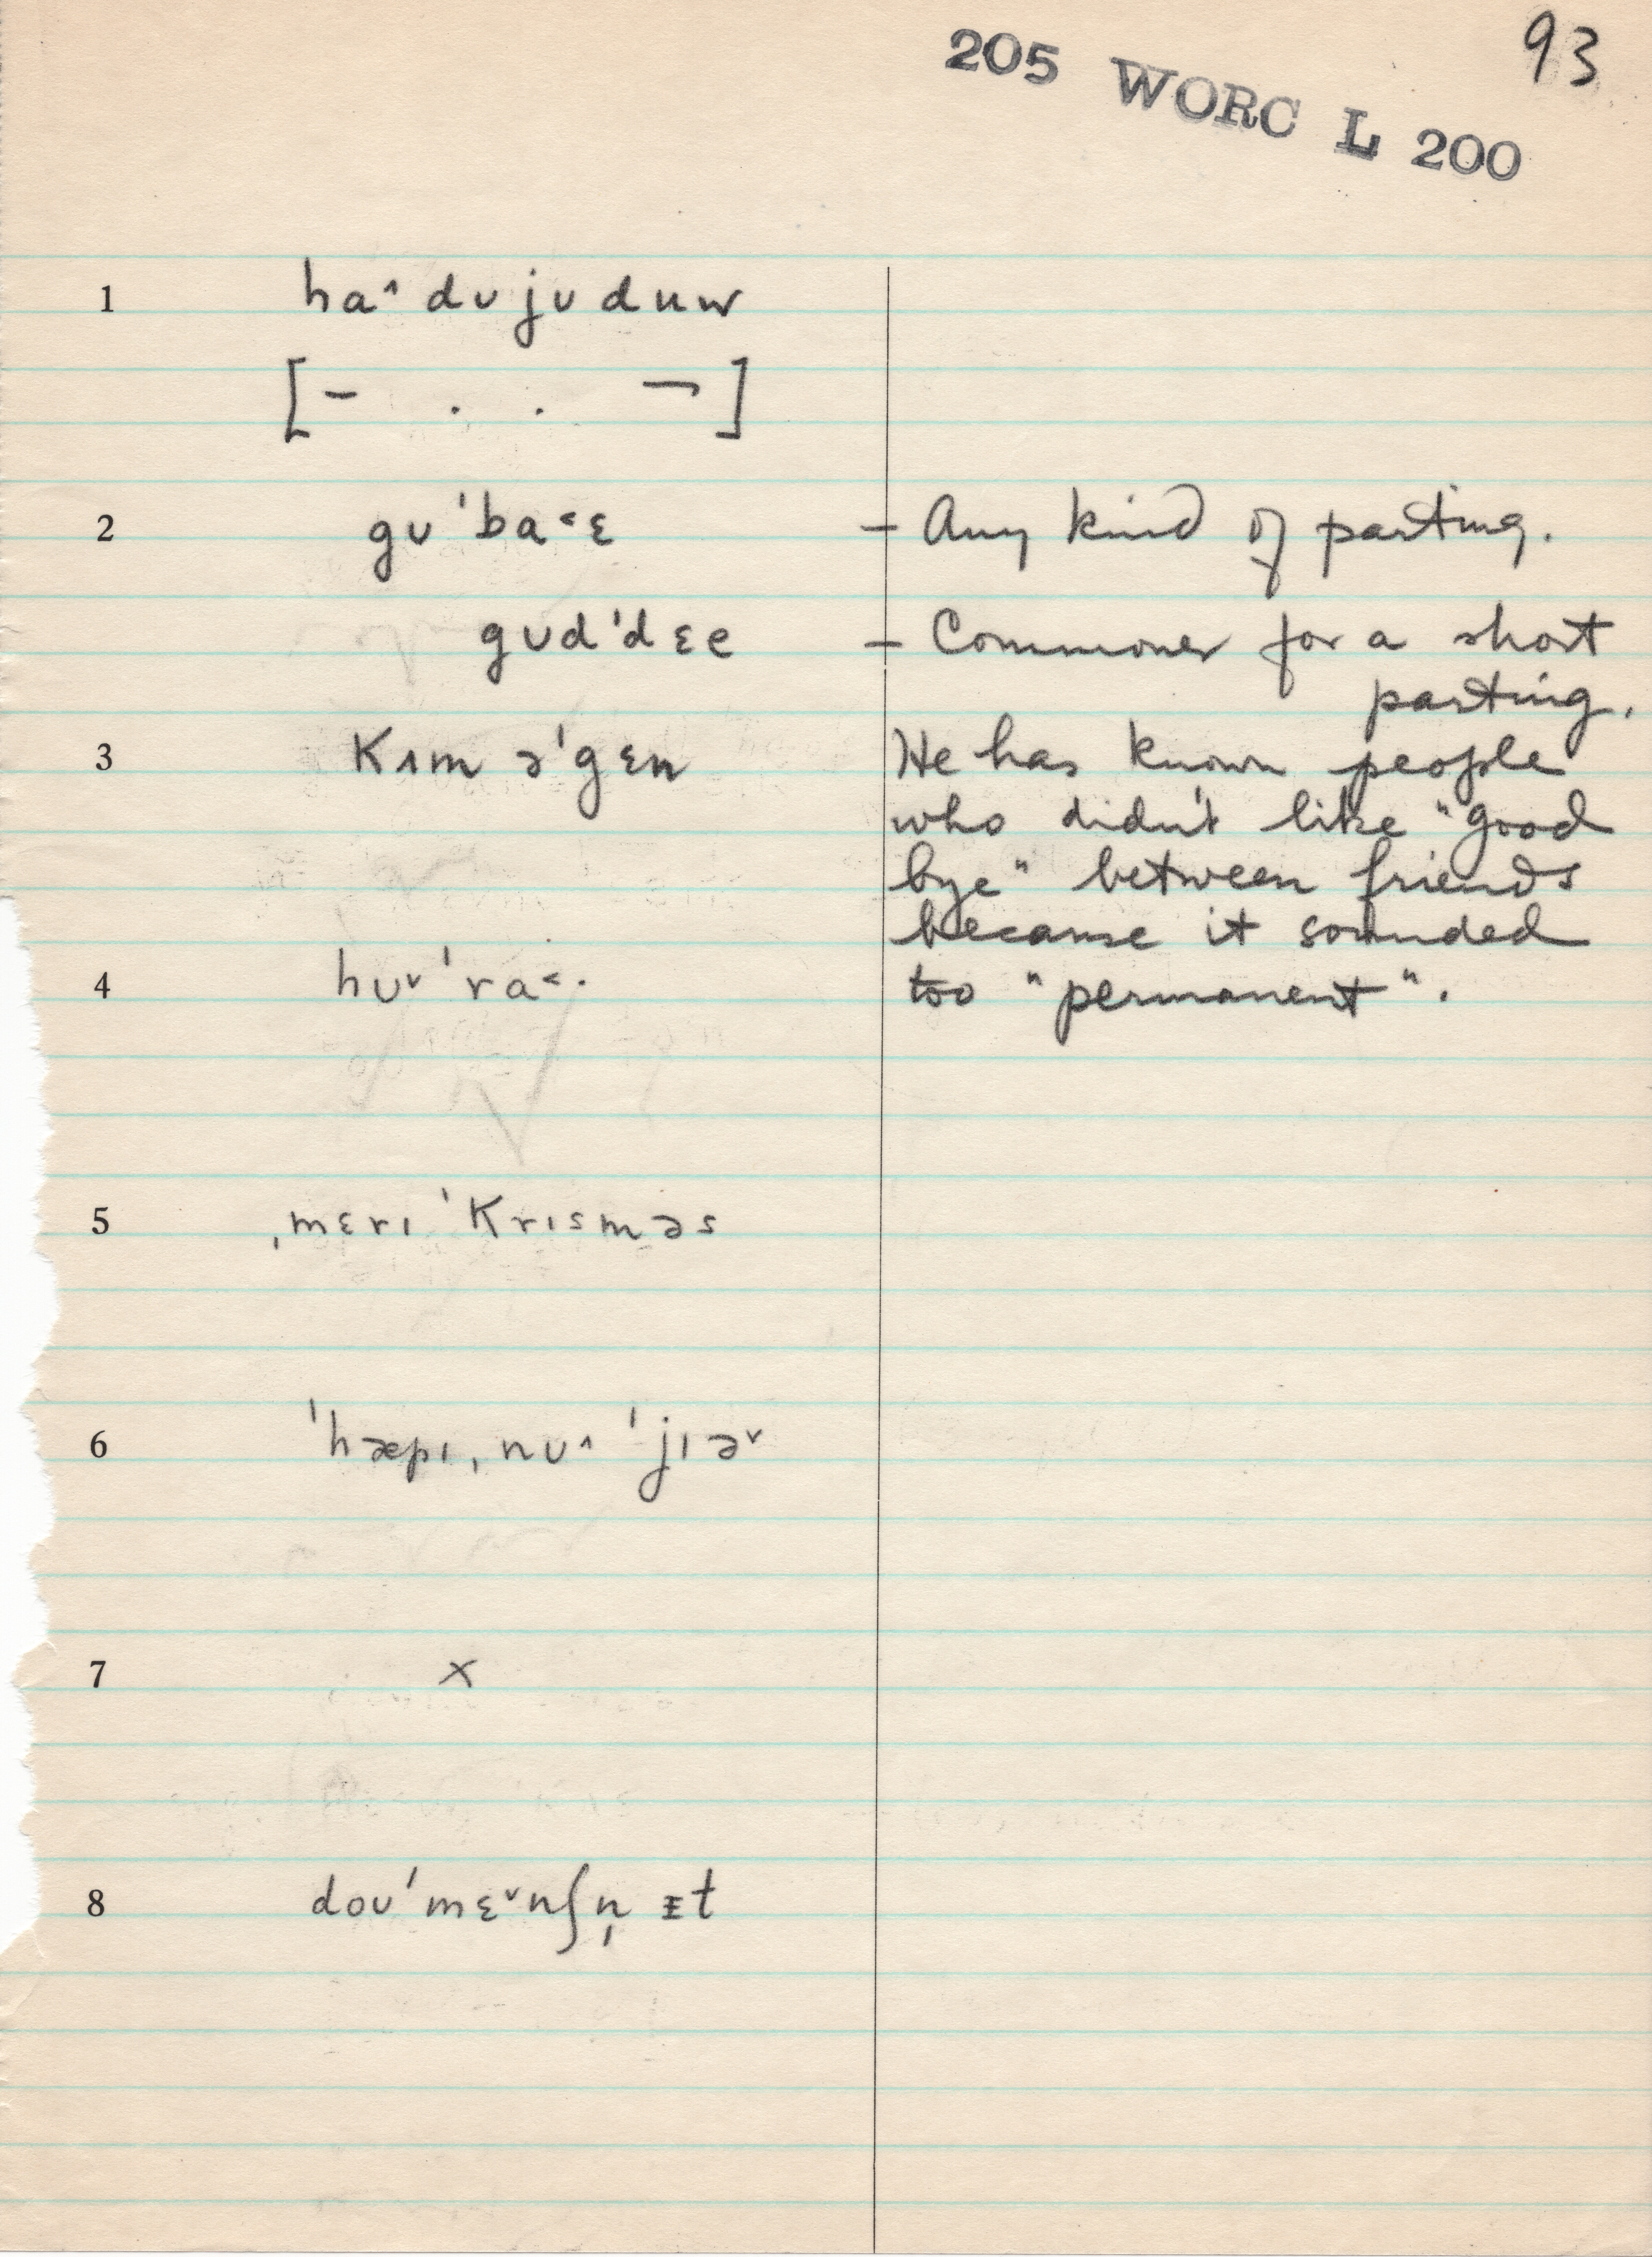 93
205 WORC L 200
1 haˆ dʊ jʊ duw
[– . . ¬]
2 gʊ ˈba˂ɛ – Any kind of parting.
gʊdˈdɛe – Commoner for a short
parting.
3 Kɪm əˈgɛn He has known people
who didn't like "good
bye" between friends
because it sounded
4 hʊˇ ˈra˂· too "permanent".
5 ˌmɛrɪ ˈKrɪsməs
6 ˈhæpɪ ˌnʊˆ ˈjɪəˇ
7 x
8 doʊˈmɛˇnʃn̩ ɪt